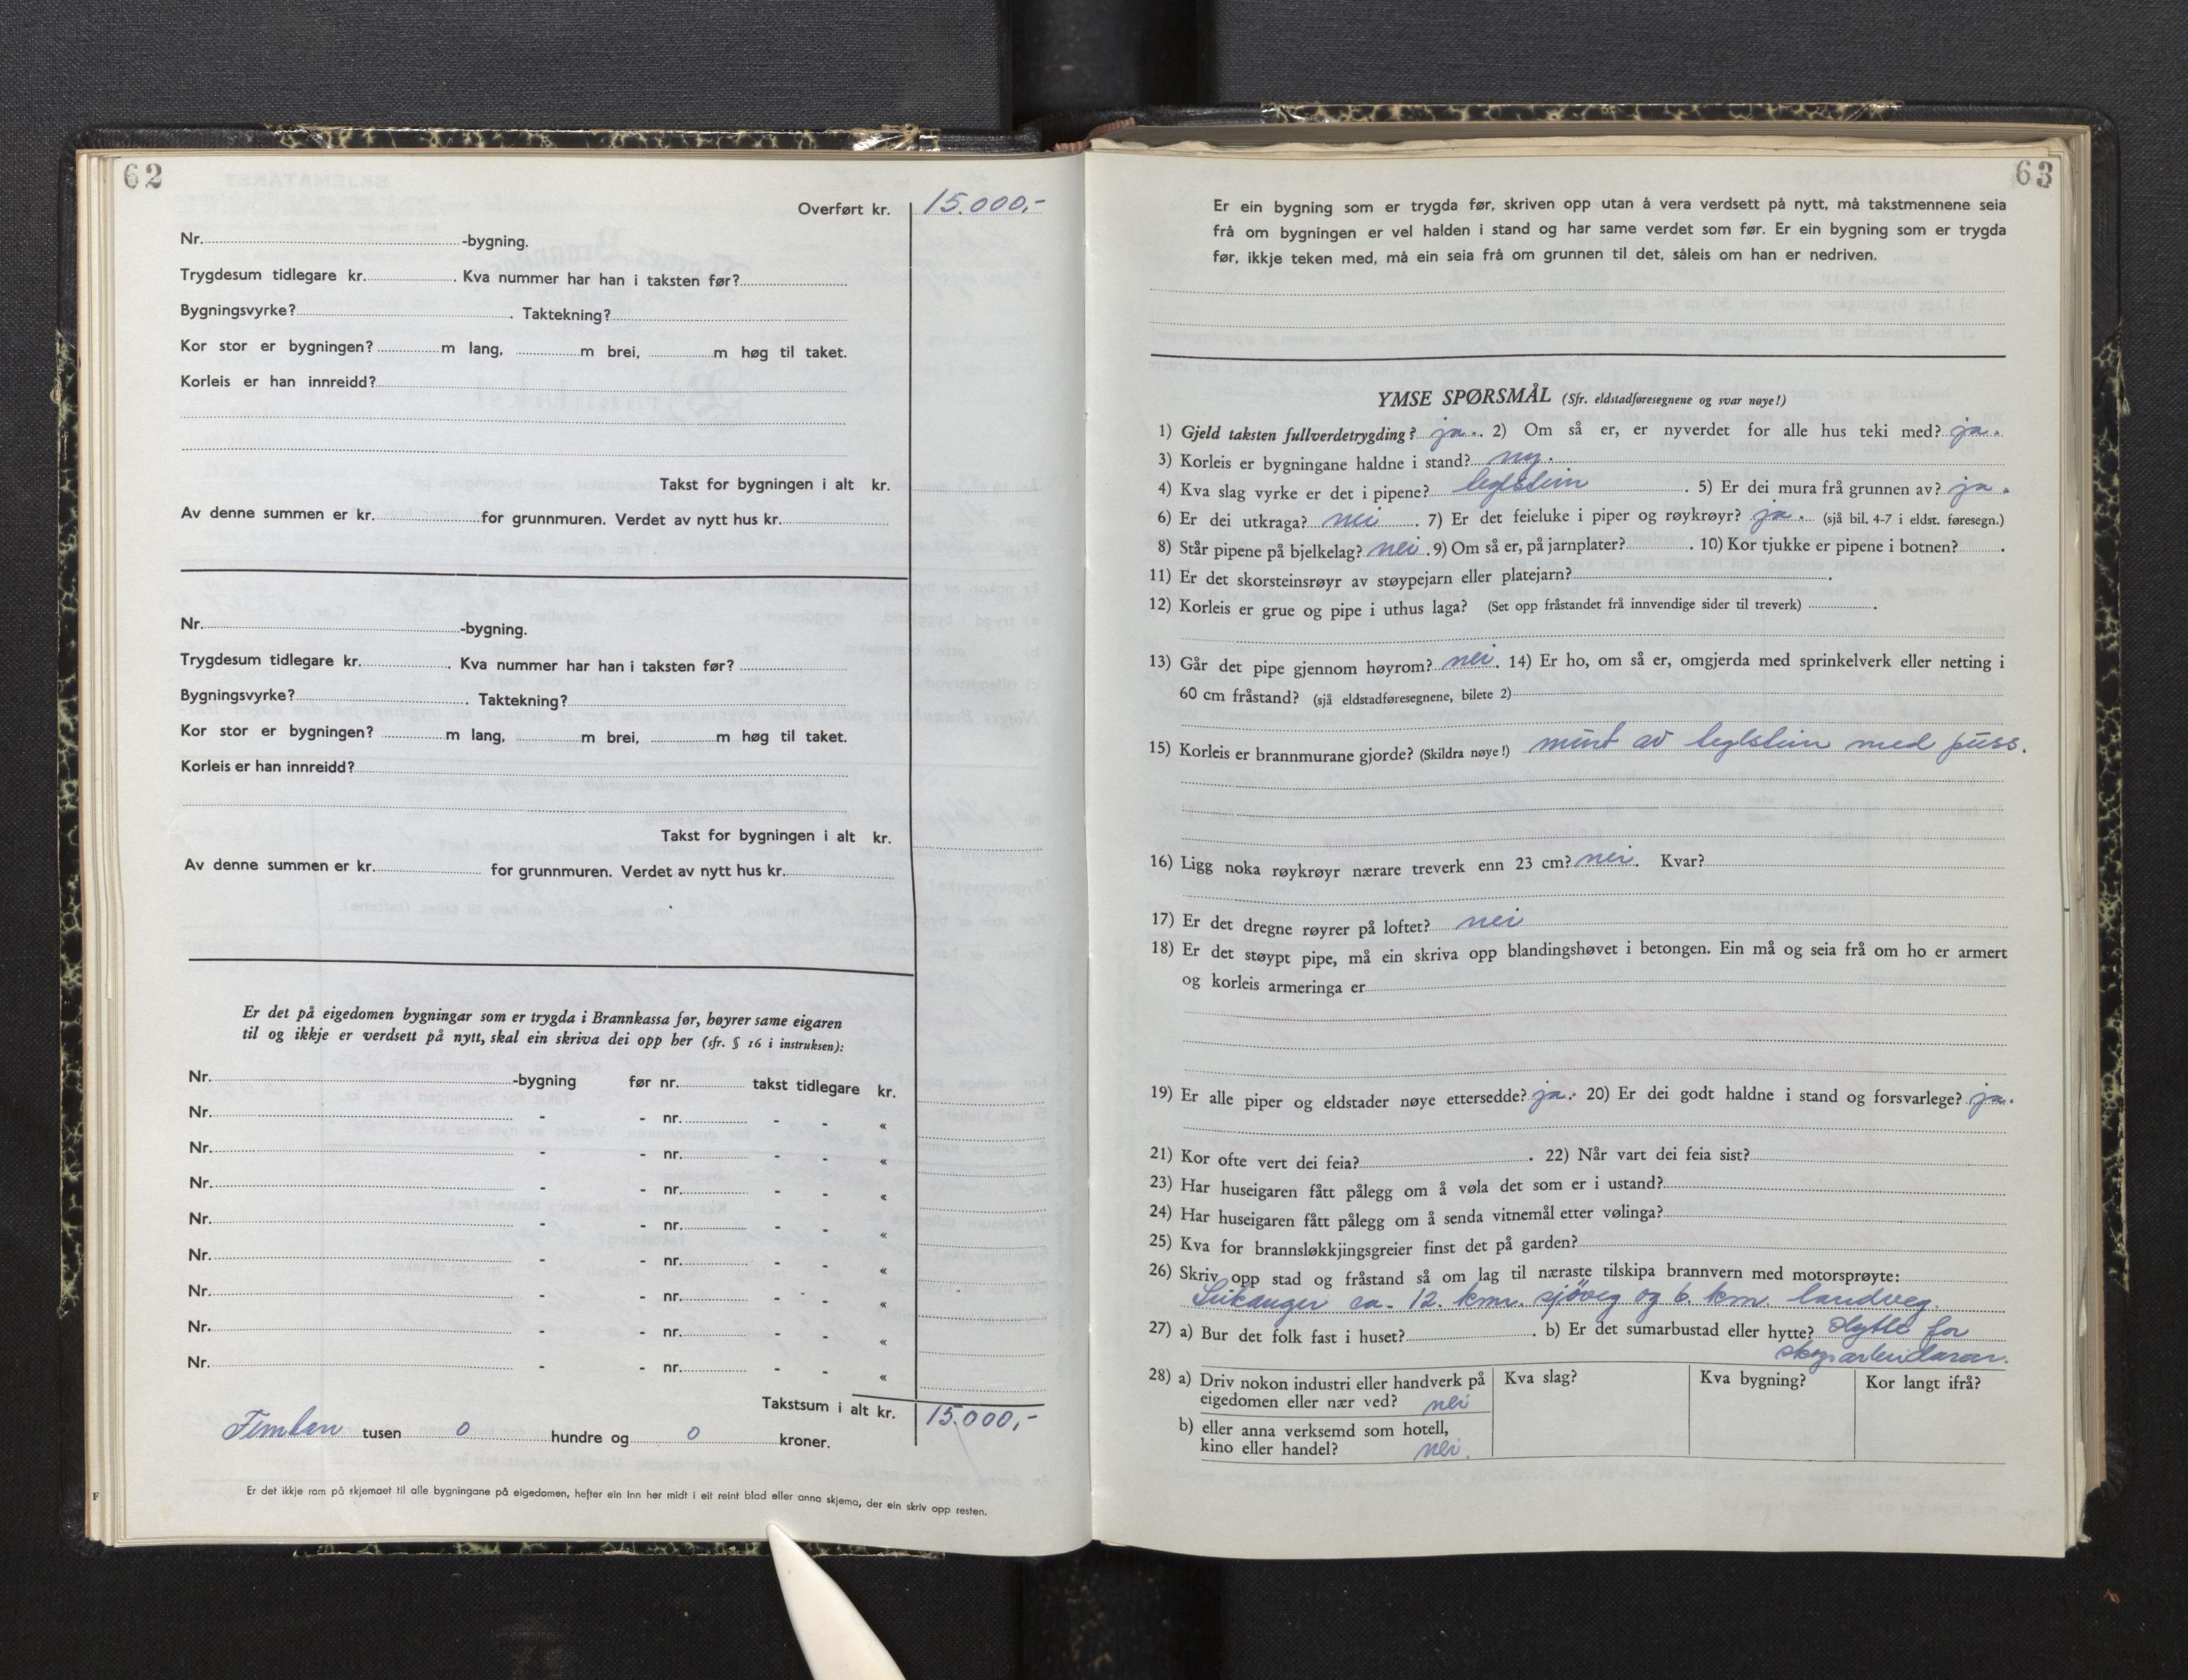 62
Overført kr. 15.000,-
Nr. -bygning.
Trygdesum tidlegare kr. . Kva nummer har han i taksten før?
Bygningsvyrke? . Taktekning?
Kor stor er bygningen? m lang, m brei, m høg til taket.
Korleis er han innreidd?
Takst for bygningen i alt kr.
Av denne summen er kr. for grunnmuren. Verdet av nytt hus kr.
Nr. -bygning.
Trygdesum tidlegare kr. . Kva nummer har han i taksten før?
Bygningsvyrke? . Taktekning?
Kor stor er bygningen? m lang, m brei, m høg til taket.
Korleis er han innreidd?
Takst for bygningen i alt kr.
Av denne summen er kr. for grunnmuren. Verdet av nytt hus kr.
Er det på eigedomen bygningar som er trygda i Brannkassa før, høyrer same eigaren
til og ikkje er verdsett på nytt, skal ein skriva dei opp her (sfr. § 16 i instruksen):
Nr. -bygning før nr. takst tidlegare kr.
Nr. - - nr. - - «
Nr. - - nr. - - «
Nr. - - nr. - - «
Nr. - - nr. - - «
Nr. - - nr. - - «
Nr. - - nr. - - «
Nr. - - nr. - - «
Nr. - - nr. - - «
Takstsum i alt kr. 15.000,-
Femten tusen 0 hundre og 0 kroner.
Er det ikkje rom på skjemaet til alle bygningane på eigedomen, hefter ein inn her midt i eit reint blad eller anna skjema, der ein skriv opp resten.
F
63
Er ein bygning som er trygda før, skriven opp utan å vera verdsett på nytt, må takstmennene seia
frå om bygningen er vel halden i stand og har same verdet som før. Er ein bygning som er trygda
før, ikkje teken med, må ein seia frå om grunnen til det, såleis om han er nedriven.
YMSE SPØRSMÅL (Sfr. eldstadføresegnene og svar nøye!)
1) Gjeld taksten fullverdetrygding? ja. . 2) Om så er, er nyverdet for alle hus teki med? ja.
3) Korleis er bygningane haldne i stand? ny.
4) Kva slag vyrke er det i pipene? teglstein . 5) Er dei mura frå grunnen av? ja .
6) Er dei utkraga? nei . 7) Er det feieluke i piper og røykrøyr? ja. (sjå bil. 4-7 i eldst. føresegn.)
8) Står pipene på bjelkelag? nei . 9) Om så er, på jarnplater? . 10) Kor tjukke er pipene i botnen? .
11) Er det skorsteinsrøyr av støypejarn eller platejarn? .
12) Korleis er grue og pipe i uthus laga? (Set opp fråstandet frå innvendige sider til treverk) .
13) Går det pipe gjennom høyrom? nei. 14) Er ho, om så er, omgjerda med sprinkelverk eller netting i
60 cm fråstand? (sjå eldstadføresegnene, bilete 2)
15) Korleis er brannmurane gjorde? (Skildra nøye!) murt av teglstein med puss.
16) Ligg noka røykrøyr nærare treverk enn 23 cm? nei. Kvar?
17) Er det dregne røyrer på loftet? nei
18) Er det støypt pipe, må ein skriva opp blandingshøvet i betongen. Ein må og seia frå om ho er armert
og korleis armeringa er
19) Er alle piper og eldstader nøye ettersedde? ja. 20) Er dei godt haldne i stand og forsvarlege? ja.
21) Kor ofte vert dei feia? . 22) Når vart dei feia sist?
23) Har huseigaren fått pålegg om å vøla det som er i ustand?
24) Har huseigaren fått pålegg om å senda vitnemål etter vølinga?
25) Kva for brannsløkkjingsgreier finst det på garden?
26) Skriv opp stad og fråstand så om lag til næraste tilskipa brannvern med motorsprøyte:
Leikanger ca. 12. km. sjöveg og 6. km. landveg.
27) a) Bur det folk fast i huset? . b) Er det sumarbustad eller hytte? Hytte for
skogsarbeidarar.
28) a) Driv nokon industri eller handverk på eigedomen eller nær ved? nei Kva slag? Kva bygning? Kor langt ifrå?
b) eller anna verksemd som hotell,
kino eller handel? nei.